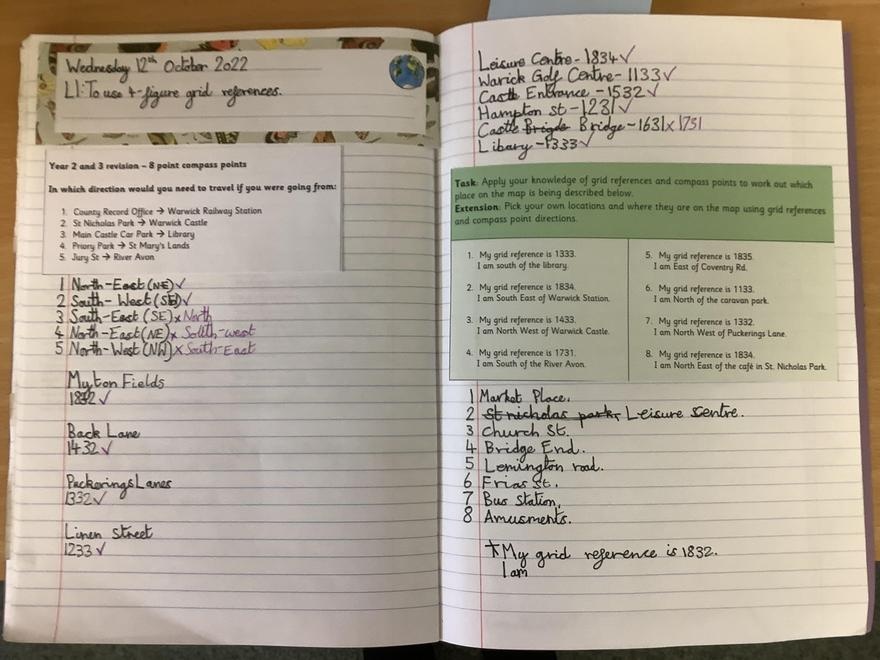 Wednesday 12th October 2022
L1: To use 4-figure grid references.
Year 2 and 3 revision – 8 point compass points
In which direction would you need to travel if you were going from:
1. County Record Office → Warwick Railway Station
2. St Nicholas Park → Warwick Castle
3. Main Castle Car Park → Library
4. Priory Park → St Mary's Lands
5. Jury St → River Avon
1 North-East (NE) ✓
2 South-West ✓
3 South-East (SE) x North
4 North-East (NE) x South-west
5 North-West (NW) x South-East
Myton Fields
1832 ✓
Back Lane
1432 ✓
Puckerings Lanes
1332 ✓
Linen Street
1233 ✓
Leisure Centre - 1834 ✓
Warick Golf Centre - 1133 ✓
Castle Entrance - 1532 ✓
Hampton st - 1231 ✓
Castle Brigde Bridge - 1631 x 1731
Libary - 1333 ✓
Task: Apply your knowledge of grid references and compass points to work out which
place on the map is being described below.
Extension: Pick your own locations and where they are on the map using grid references
and compass point directions.
1. My grid reference is 1333.
I am south of the library.
2. My grid reference is 1834.
I am South East of Warwick Station.
3. My grid reference is 1433.
I am North West of Warwick Castle.
4. My grid reference is 1731.
I am South of the River Avon.
5. My grid reference is 1835.
I am East of Coventry Rd.
6. My grid reference is 1133.
I am North of the caravan park.
7. My grid reference is 1332.
I am North West of Puckerings Lane.
8. My grid reference is 1834.
I am North East of the café in St. Nicholas Park.
1 Market Place.
2 St nicholas park, Leisure Sentre.
3 Church St.
4 Bridge End.
5 Lemington road.
6 Frias St.
7 Bus Station,
8 Amusments.
*My grid reference is 1832.
I am